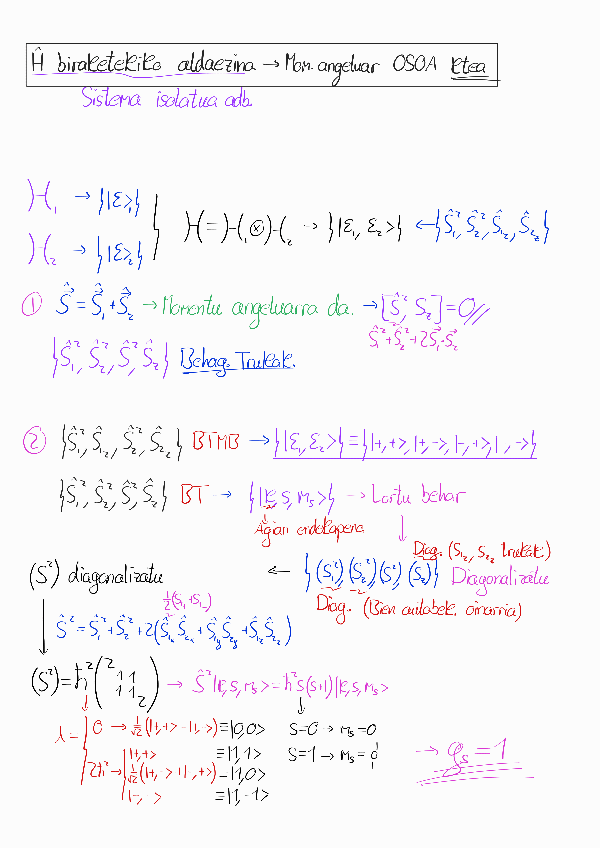 Ĥ biraketekiko aldaezina → Mom. angeluar OSOA ktea
Sistema isolatua adb.
H₁ → {|ε₁>}
H₂ → {|ε₂>}
H = H₁ ⊗ H₂ → {|ε₁, ε₂>} ← {Ŝ₁², Ŝ₂², Ŝ₁z, Ŝ₂z}
① S⃗ = S⃗₁ + S⃗₂ → Momentu angeluarra da. → [Ŝ², Sz] = 0//
Ŝ₁² + Ŝ₂² + 2S⃗₁·S⃗₂
{Ŝ₁², Ŝ₂², Ŝ², Ŝz} Behag. Trukak.
② {Ŝ₁², Ŝ₁z, Ŝ₂², Ŝ₂z} BTMB → {|ε₁, ε₂>} = {|+,+>, |+,->, |-,+>, |-,->}
{Ŝ₁², Ŝ₂², Ŝ², Ŝz} BT → {|k, s, ms>} → Lortu behar
Agian endekapena
Diag. (S₁z, S₂z trukak.)
(S²) diagonalizatu ← {(S₁²), (S₂²), (S²), (Sz)} Diagonalizatu
Diag. (Bien autobek. oinarria)
½(S₁+S₂)
Ŝ² = Ŝ₁² + Ŝ₂² + 2(Ŝ₁xŜ₂x + Ŝ₁yŜ₂y + Ŝ₁zŜ₂z)
(S²) = ħ² (2 1 1 1 1 2) → Ŝ²|k, s, ms> = ħ²s(s+1)|k, s, ms>
λ = 0 → 1/√2 (|+,-> - |-,+>) ≡ |0,0> S=0 → ms = 0
|+,+> ≡ |1,1> S=1 → ms = 1 0 -1
2ħ² → 1/√2 (|+,-> + |-,+>) ≡ |1,0>
|-,-> ≡ |1,-1>
→ gs = 1